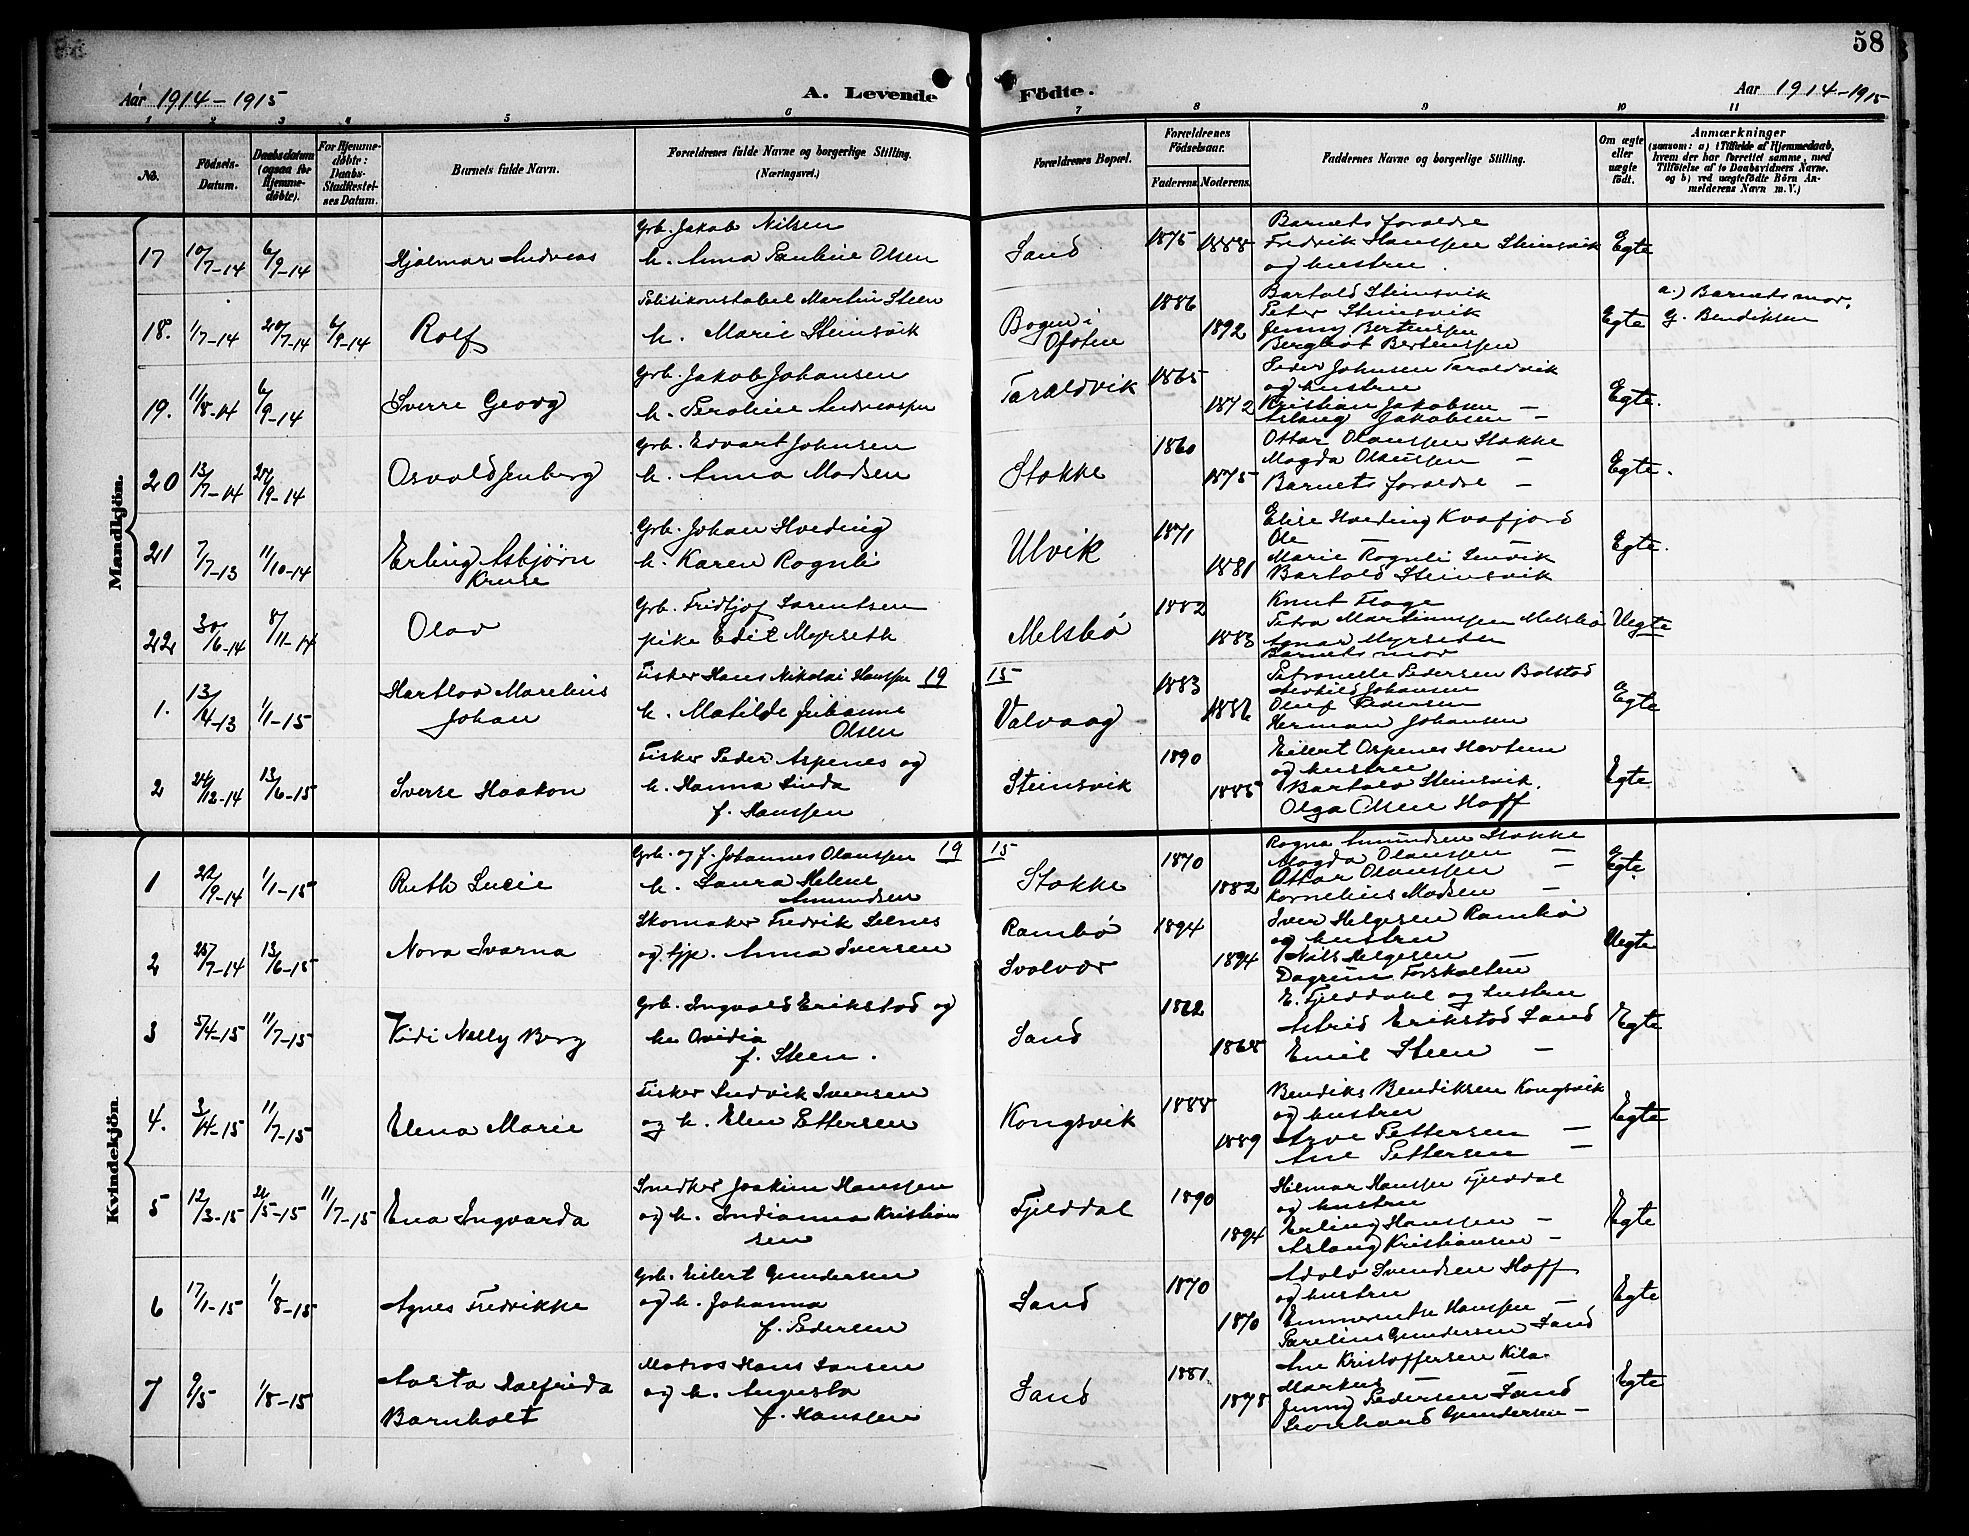 58
Aar 1914-1915
A. Levende Födte.
Aar 1914-1915
1 2 3 4 5 6 7 8 9 10 11
No.
Födsels-Datum.
Daabsdatum (ogsaa for Hjemme-døbte).
For Hjemme-døbte: Daabs-Stadfæstel-ses Datum.
Barnets fulde Navn.
Forældrenes fulde Navne og borgerlige Stilling. (Næringsvei.)
Forældrenes Bopæl.
Forældrenes Födselsaar.
Faderens. Moderens.
Faddernes Navne og borgerlige Stilling.
Om ægte eller uægte født.
Anmærkninger
(saasom: a) i Tilfælde af Hjemmedaab, hvem der har forrettet samme, med Tilföielse af to Daabsvidners Navne. og b) ved uægtefödte Börn An-melderens Navn m.V.)
Mandkjön.
17 10/7-14 6/9-14 Hjalmar Andreas
Grb. Jakob Nilsen
h. Anna Pauline Olsen
Sand 1875 1888
Barnets foraldre
Fredrik Hanssen Steinsvik
og hustru.
Egte
18. 1/7-14 20/7-14 6/9-14 Rolf
Politikonstabel Martin Steen
h. Marie Steinsvik
Bogen i
Ofoten
1886 1892
Bartold Steinsvik
Peter Steinsvik
Jenny Bertenssen
Bergliot Bertenssen
Egte
a.) Barnets mor,
G. Bendiksen
19. 11/8-14 6/9-14 Sverre Georg
Grb. Jakob Johansen
h. Seroline Andreassen
Taraldvik 1865 1872
Peder Johnsen Taraldvik
og hustru
Kristian Jakobsen —
Aslaug Jakobsen —
Egte.
20 13/7-14 20/9-14 Osvald Jenberg
Grb. Edvart Johnsen
h. Anna Madsen
Stokke 1860 1875
Ottar Olaussen Stokke
Magda Olaussen —
Barnets foraldre —
Egte.
21 7/7-13 11/10-14 Erling Asbjørn
Kruse
Grb. Johan Hveding
h. Karen Rognli
Ulvik 1871 1881
Elise Hveding Kvæfjord
Ole —
Marie Rognli
Bartold Steinsvik
Egte.
22 30/6-14 8/11-14 Olav
Grb. Fridtjof Sarentsen
pike Edit Myrseth
Melsbø 1882 1883
Knut Flage
Petra Martinussen Melsbø
Agnar Myrseth
Barnets mor
Uegte
19 15
1. 13/4-13 1/1-15 Hartlov Marelius
Johan
Fisker Hans Nikolai Hanssen
h. Matilde Julianne
Olsen
Valvaag 1883 1886
Petronelle Pedersen Bolstad
Johansen
Oluf Pedersen
Herman Johansen
Egte
2 24/12-14 13/6-15 Sverre Haakon
Fisker Peder Aspenes og
h. Hanna Linda
f. Hanssen
Steinsvik 1890 1885
Eilert Aspenes
og hustru
Bartolv Steinsvik.
Olga Olsen Hoff
Egte
Kvindekjön.
19 15
1 22/9-14 1/1-15 Ruth Lucie
Grb. og f. Johannes Olaussen
h. Laura Helene
Amundsen
Stokke 1870 1882
Ragna Amundsen Stokke
Magda Olaussen —
Ottar Olaussen —
Kornelius Madsen —
Egte.
2 25/7-14 13/6-15 Nora Ivarna
Skomaker Fredrik Selnes
og tjp. Anna Iversen
Rambø
Svolvær
1894 1894
Iver Helgesen Rambø
og hustru
Nils Helgesen —
Dagrun Forshalten
Uegte
3 5/4-15 11/7-15 Vidi Nelly Berg
Grb. Ingvald Erikstad og
h. Ovidia
f. Steen.
Sand 1862 1868
E. Fjelddahl og hustru
Astrid Erikstad Sand
Emil Steen —
Egte
4. 3/4-15 11/7-15 Elena Marie
Fisker Ludvik Iversen
og h. Elen Pettersen
Kongsvik 1888 1889
Bendiks Bendiksen Kongsvik
og hustru
Arve Pettersen —
Ane Pettersen —
Egte
5 12/3-15 21/5-15 11/7-15 Ena Ingvarda
Snedker Joakim Hanssen
og h. Indianna Kristian
sen
Fjelddal 1890 1894
Hilmar Hanssen Fjelddal
og hustru
Erling Hanssen —
Aslaug Kristiansen —
Egte
6 17/1-15 1/8-15 Agnes Fredrikke
Grb. Eilert Gundersen
og h. Johanna
f. Pedersen
Sand 1870 1870
Adolv Svendsen Hoff
og hustru
Emmerentse Hanssen —
Parelius Gundersen Sand
Egte
7 9/5 1/8-15 Aasta Dalfrida
Barnholt
Matros Hans Larsen
og h. Augusta
f. Hanssen
Sand 1881 1878
Ane Kristoffersen Kila
Markus —
Jenny Pedersen Sand
Leonhard Gundersen —
Egte